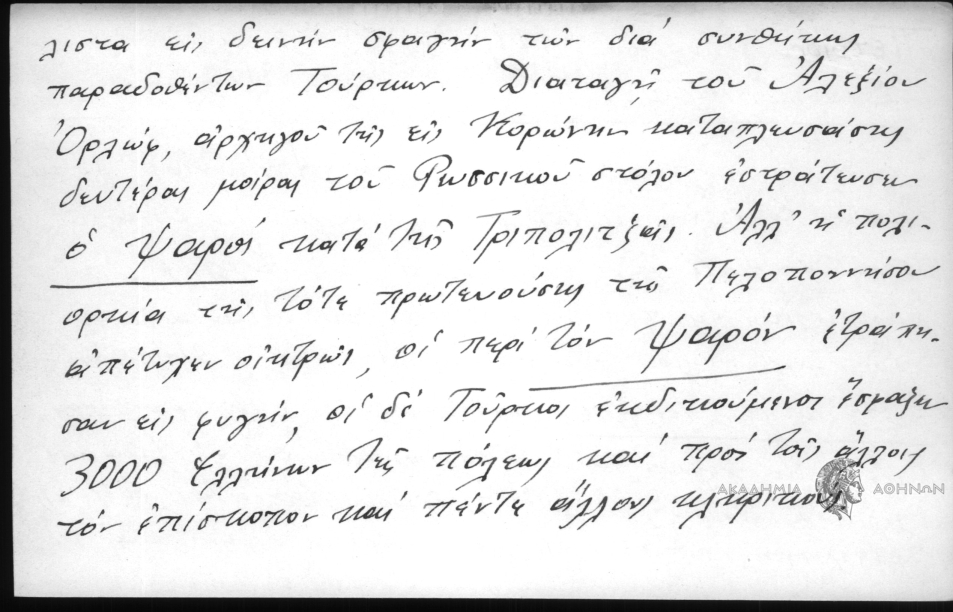 λιστα εἰς δεινὴν σφαγὴν τῶν διά συνθήκης
παραδοθέντων Τούρκων. Διαταγῇ τοῦ Ἀλεξίου
Ὀρλώφ, ἀρχηγοῦ τῆς εἰς Κορώνην καταπλευσάσης
δευτέρας μοίρας τοῦ Ρωσσικοῦ στόλου ἐστράτευσεν
ὁ Ψαρός κατά τῆς Τριπολιτζᾶς. Ἀλλ' ἡ πολι-
ορκία τῆς τότε πρωτευούσης τῆς Πελοποννήσου
ἀπέτυχεν οἰκτρῶς, οἱ περί τόν Ψαρόν ἐτράπη-
σαν εἰς φυγήν, οἱ δέ Τοῦρκοι ἐκδικούμενοι ἔσφαξαν
3000 Ἑλλήνων τῆς πόλεως καί πρός τοῖς ἄλλοις
τόν ἐπίσκοπον καί πέντε ἄλλους κληρικούς.
ΑΚΑΔΗΜΙΑ ΑΘΗΝΩΝ